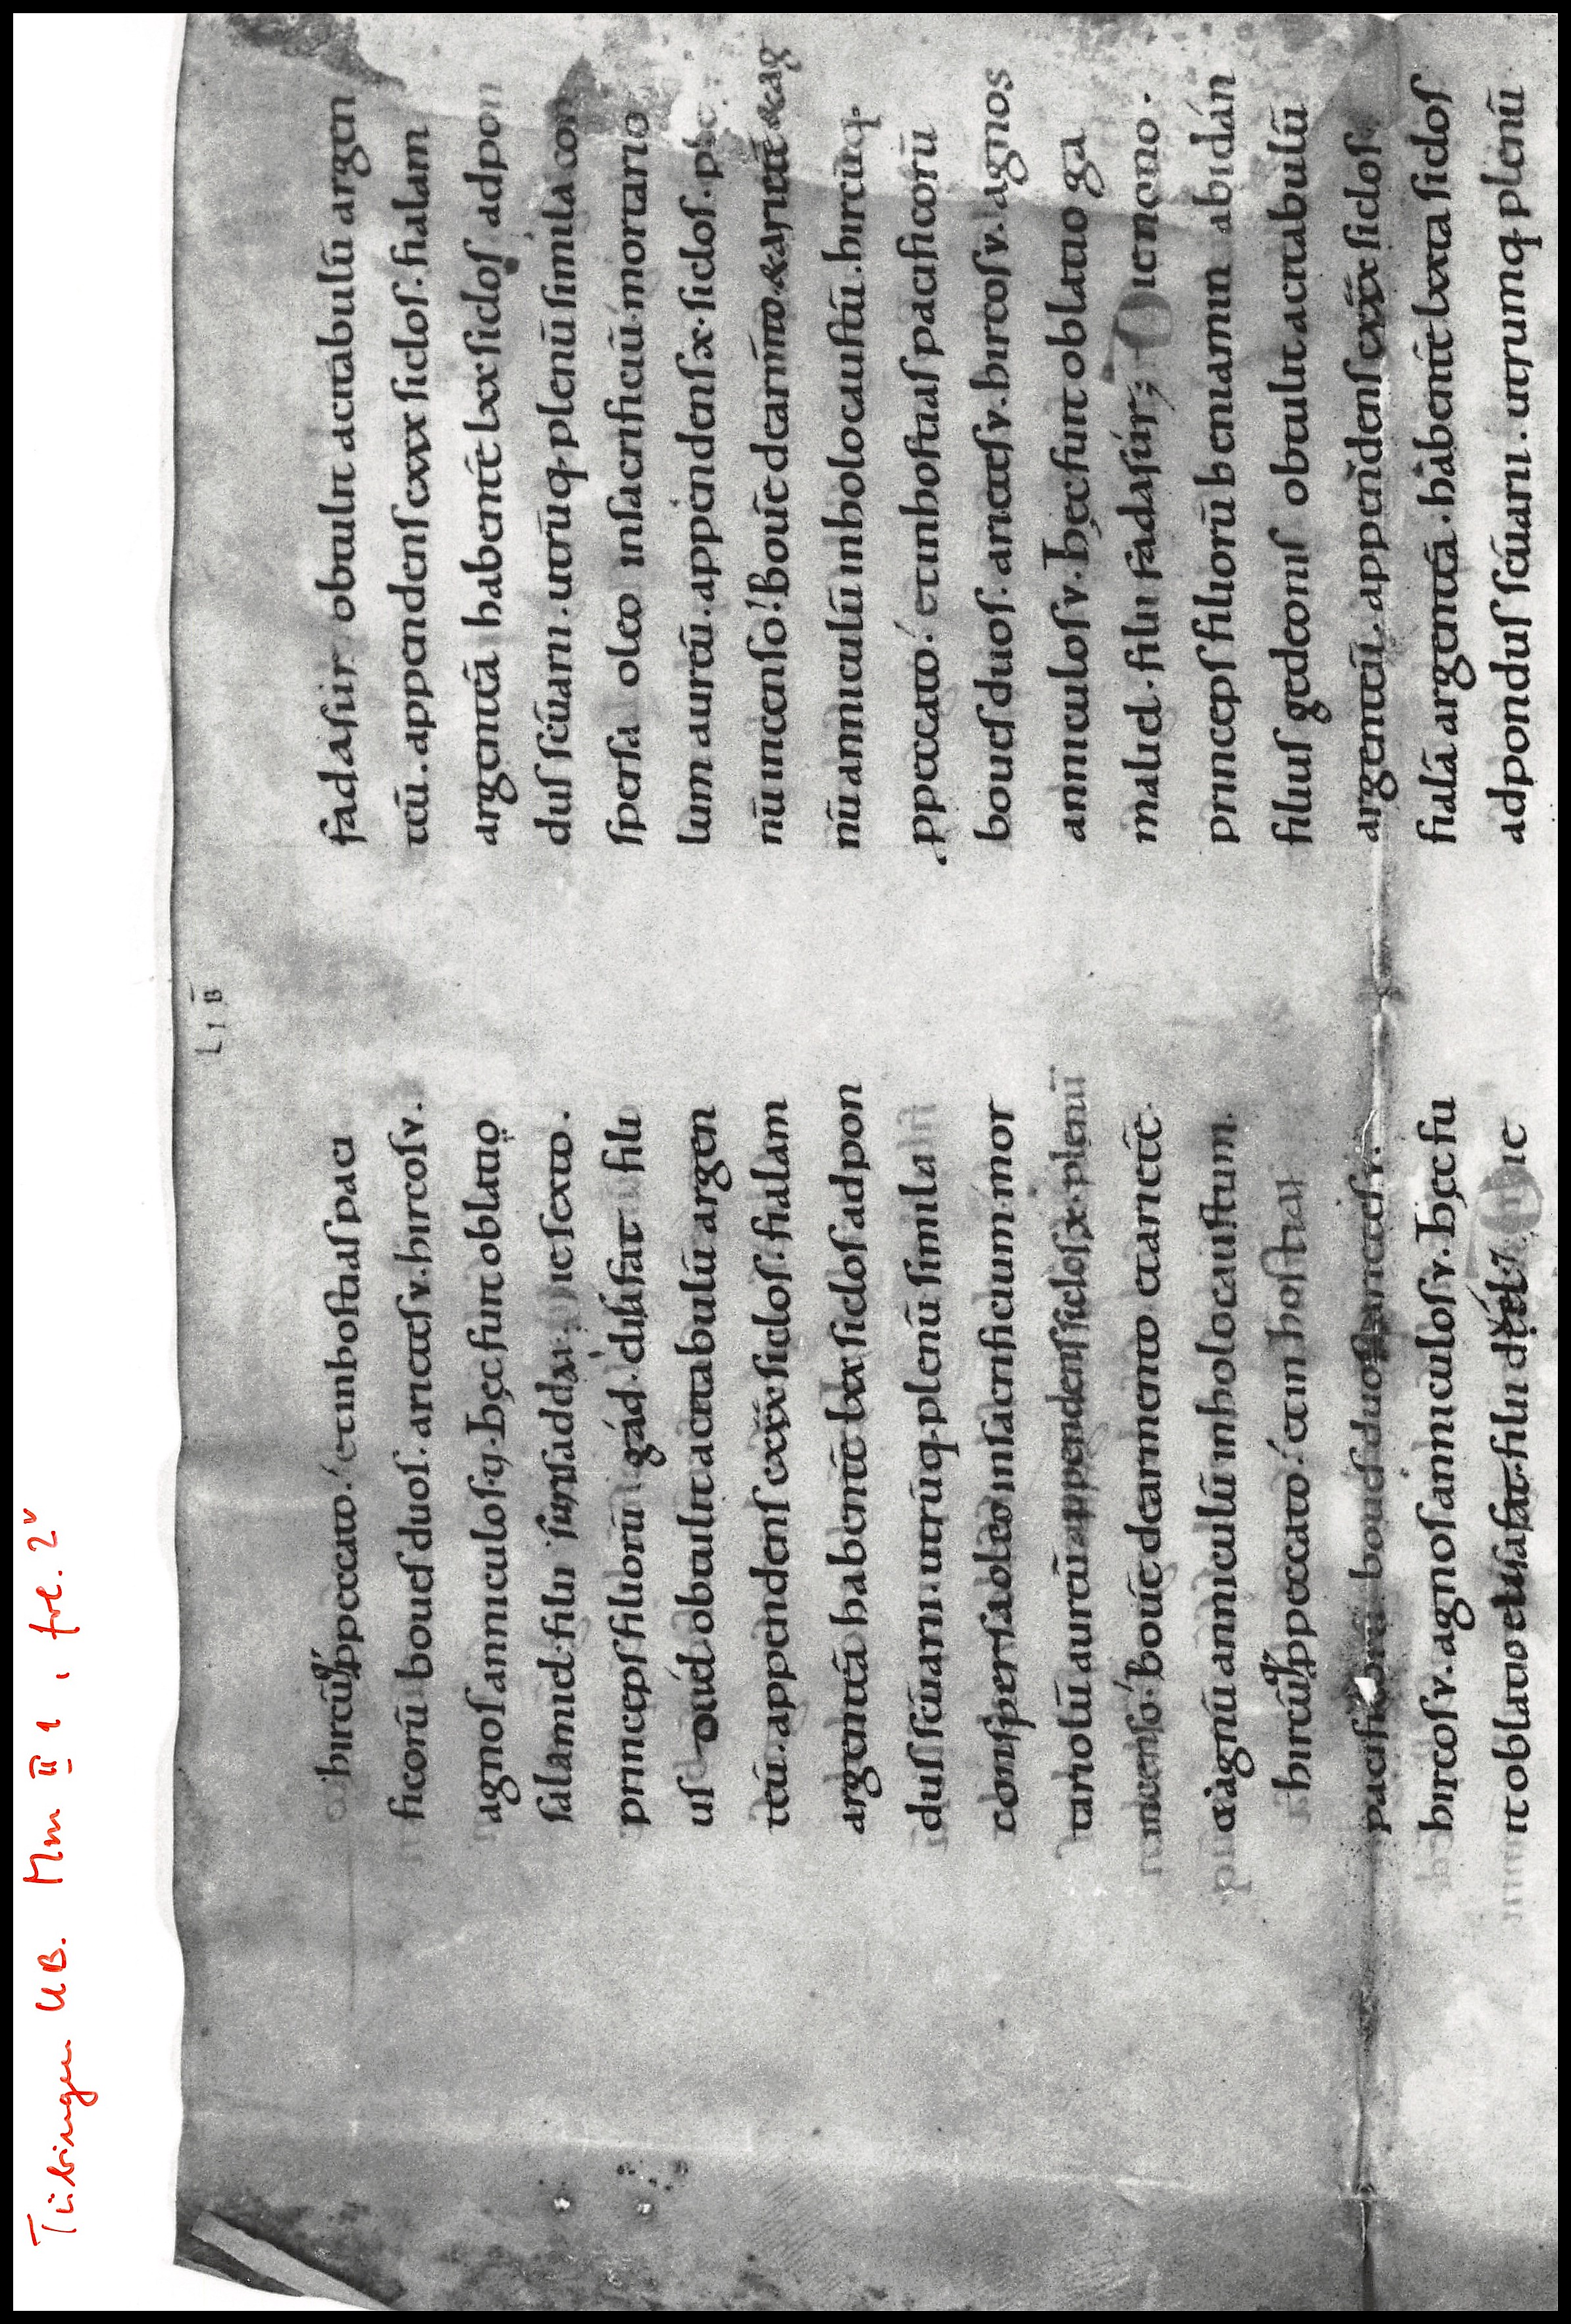 Tübingen UB. Mm III 1, fol. 2v
LIB̄
hircūq; ꝓpeccato. &inhostiaspaci
ficorū bouesduos. arietesv. hircosv.
agnosanniculosv. hęcfuitoblatio
salamiel. filii surisaddai. ie sexto.
princepsfiliorū gád. eliſaf fili
us duel obtulit acetabulū argen
teū. appendens cxxx siclos. fialam
argenteā habentē lxx siclos adpon
dus scūarii. utrūq; plenū simila
conspersaoleo insacrificium. mor
tariolū aureū appendenssiclos x. plenū
incenso. bouē dearmento etarietē.
&agnū anniculū inholocaustum.
hircūq; ꝓpeccato. & in hostias
pacificorū bouesduos. arietes v.
hircosv. agnosanniculosv. hęc fu
it oblatio elisafat. filii duel. Die
fadasur obtulit acetabulū argen
teū. appendens cxxx siclos. fialam
argenteā habentē lxx siclos adpon
dus scūarii. utrūq; plenū simila con
spersa oleo insacrificiū. mortario
lum aureū. appendens x. siclos.
nū incenso. Bouē dearmto. &arietē &ag
nū anniculū inholocaustū. hircūq;
ꝓpeccato. etinhostiaspacificorū
bouesduos. arietesv. hircosv. agnos
anniculosv. hęcfuit oblatio ga
maliel. filii fadasúr; Die nono.
princeps filiorū beniamin abidán
filius gedeonis obtulit acetabulū
argenteū. appendens cxxx siclos
fialā argenteā. habentē lxxta siclos
adpondus scūarii. utrumq; plenū